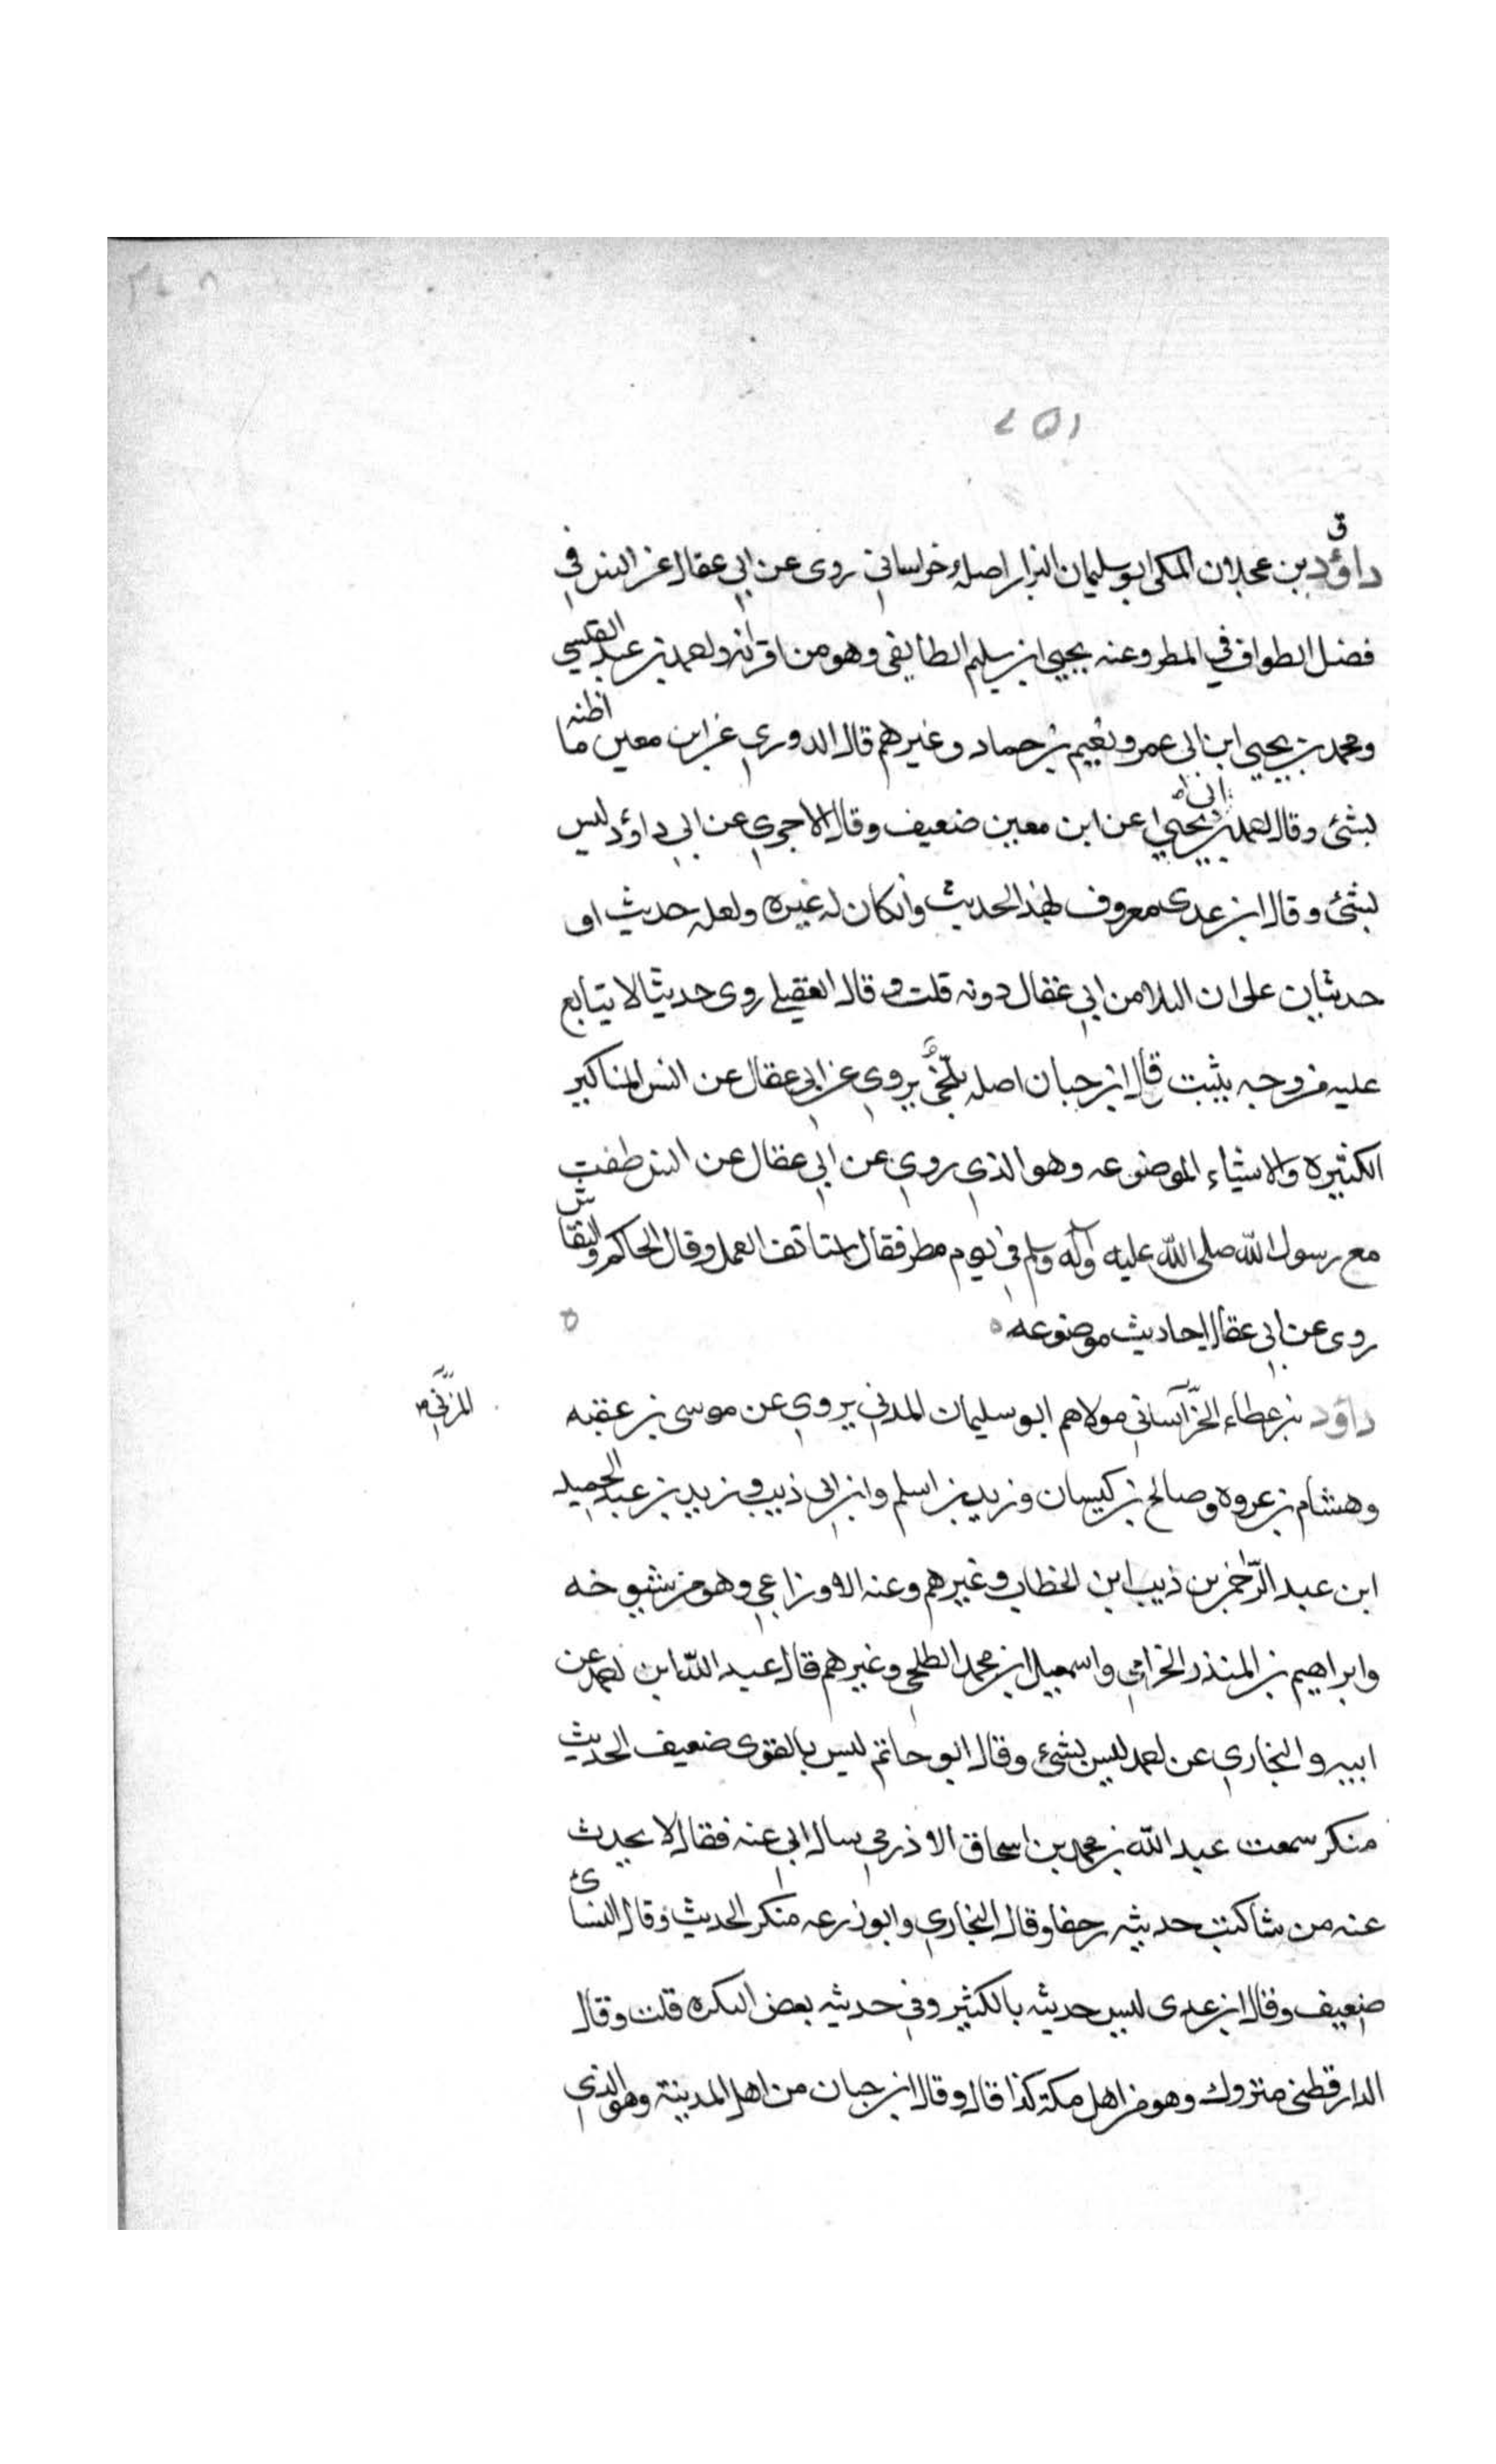 ٢٥١
ق
داؤد بن عجلان المكى ابو سليمان البزار اصله خراساني روى عن ابي عقال عن انس في
فضل الطواف في المطر وعنه يحيى ابن سليم الطايفي وهو من اقرانه واحمد بن عبد القيسي
ومحمد بن يحيى ابن ابى عمر ونعيم بن حماد وغيرهم قال الدوري عن ابن معين ما اظنه
بشئ وقال احمد بن يحيى عن ابن معين ضعيف وقال الاجري عن ابي داؤد ليس
بشئ وقال ابن عدى معروف بهذا الحديث وانكان له غيره ولعله حديث او
حديثان على ان البلا من ابي عقال دونه قلت و قال العقيلي روى حديثا لا يتابع
عليه من وجه يثبت قال ابن حبان اصله بلخي يروي عن ابي عقال عن انس المناكير
الكثيره والاشياء الموضوعه وهو الذي روي عن ابي عقال عن انس طفت
مع رسول الله صلى الله عليه وآله وسلم في يوم مطر فقال استأنف العمل وقال الحاكم والنقاش
روى عن ابي عقال احاديث موضوعه
داؤد بن عطاء الخراساني مولاهم ابو سليمان المدني يروي عن موسى بن عقبه
المزني
وهشام بن عروه وصالح بن كيسان وزيد بن اسلم وابن ابى ذيب وزيد بن عبد الحميد
ابن عبد الرحمن بن ذيب ابن الخطاب وغيرهم وعنه الاوزاعي وهو من شيوخه
وابراهيم بن المنذر الخزامي واسمعيل ابن محمد الطلحي وغيرهم قال عبد الله ابن احمد عن
ابيه والبخاري عن احمد ليس بشئ وقال ابو حاتم ليس بالقوى ضعيف الحديث
منكر سمعت عبد الله بن محمد بن اسحاق الاذرمي سال ابي عنه فقال لا يحدث
عنه من شا كتب حديثه زحفا وقال البخاري وابو زرعه منكر الحديث وقال النسائ
ضعيف وقال ابن عدى ليس حديثه بالكثير وفي حديثه بعض النكره قلت وقال
الدارقطنى متروك وهو من اهل مكة كذا قال وقال ابن حبان من اهل المدينة وهو الذي